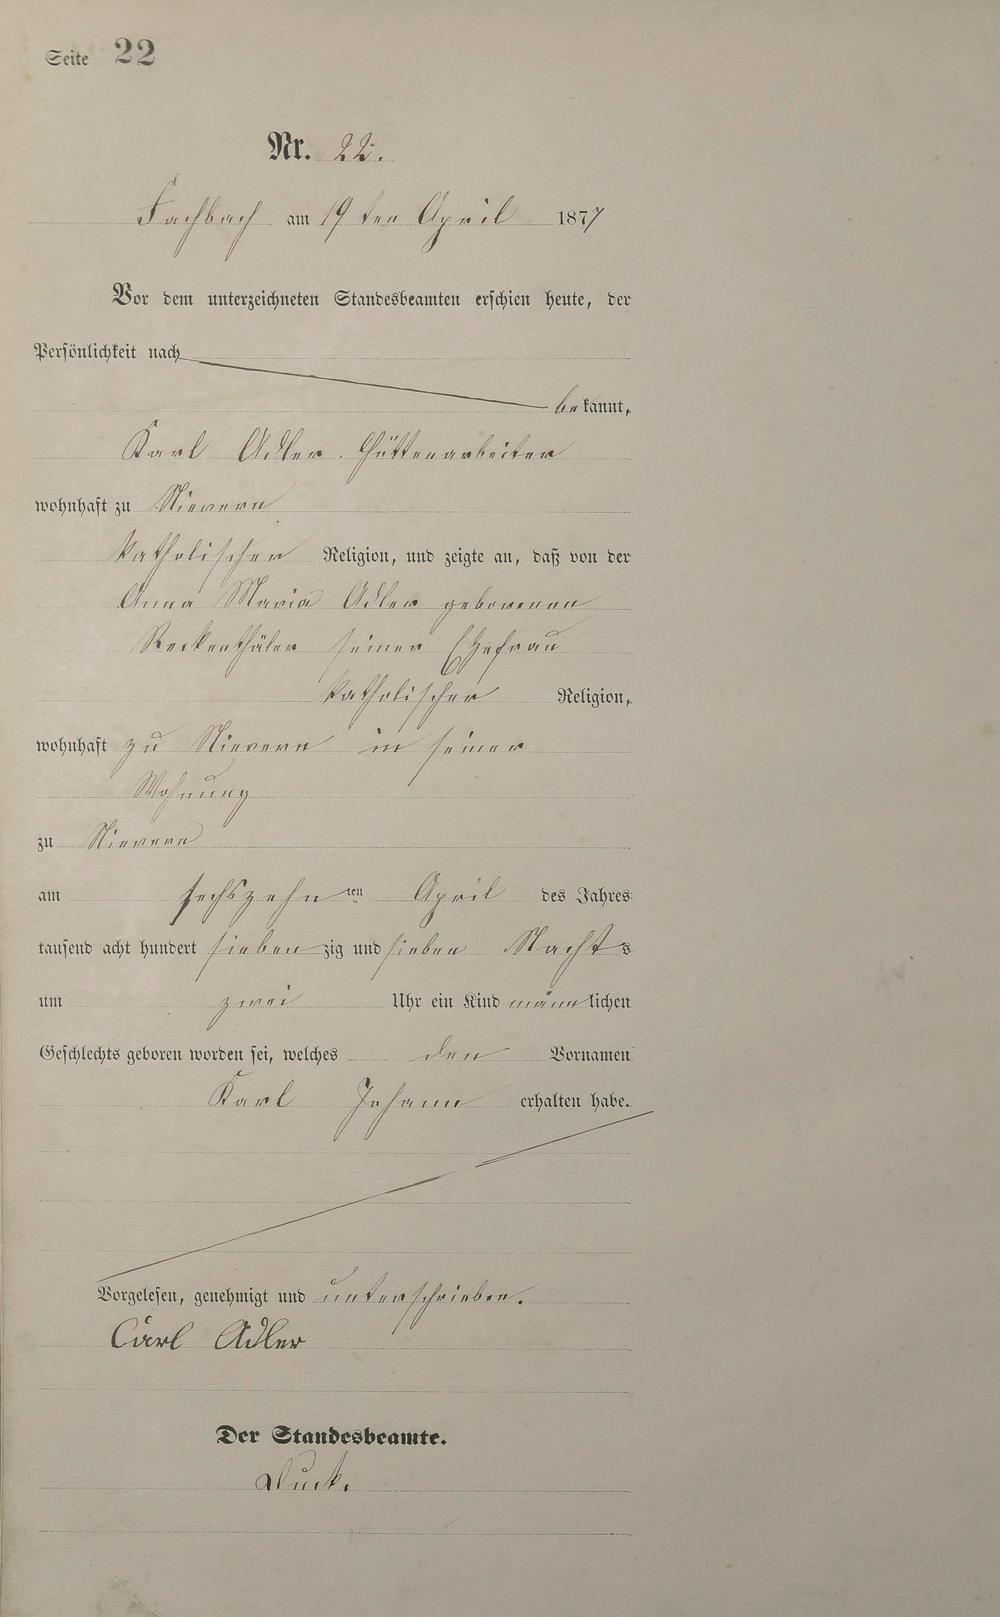 Seite 22
Nr. 22.
Fachbach am 19ten April 1877
Vor dem unterzeichneten Standesbeamten erschien heute, der
Persönlichkeit nach
bekannt,
Karl Adler. Hüttenarbeiter
wohnhaft zu Nievern
katholischer Religion, und zeigte an, daß von der
Anna Maria Adler geborenen
Reckenthäler seiner Ehefrau
katholischer Religion,
wohnhaft zu Nievern in seiner
Wohnung
zu Nievern
am sechszehnten April des Jahres
tausend acht hundert siebenzig und sieben Nachts
um zwei Uhr ein Kind männlichen
Geschlechts geboren worden sei, welches den Vornamen
Karl Johann erhalten habe.
Vorgelesen, genehmigt und unterschrieben.
Carl Adler
Der Standesbeamte.